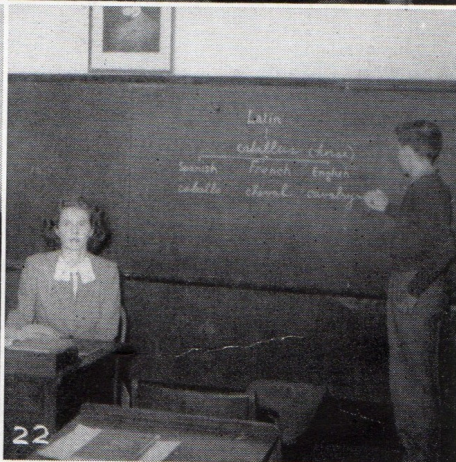 Latin
caballus (horse)
Spanish French English
caballo cheval cavalry
22